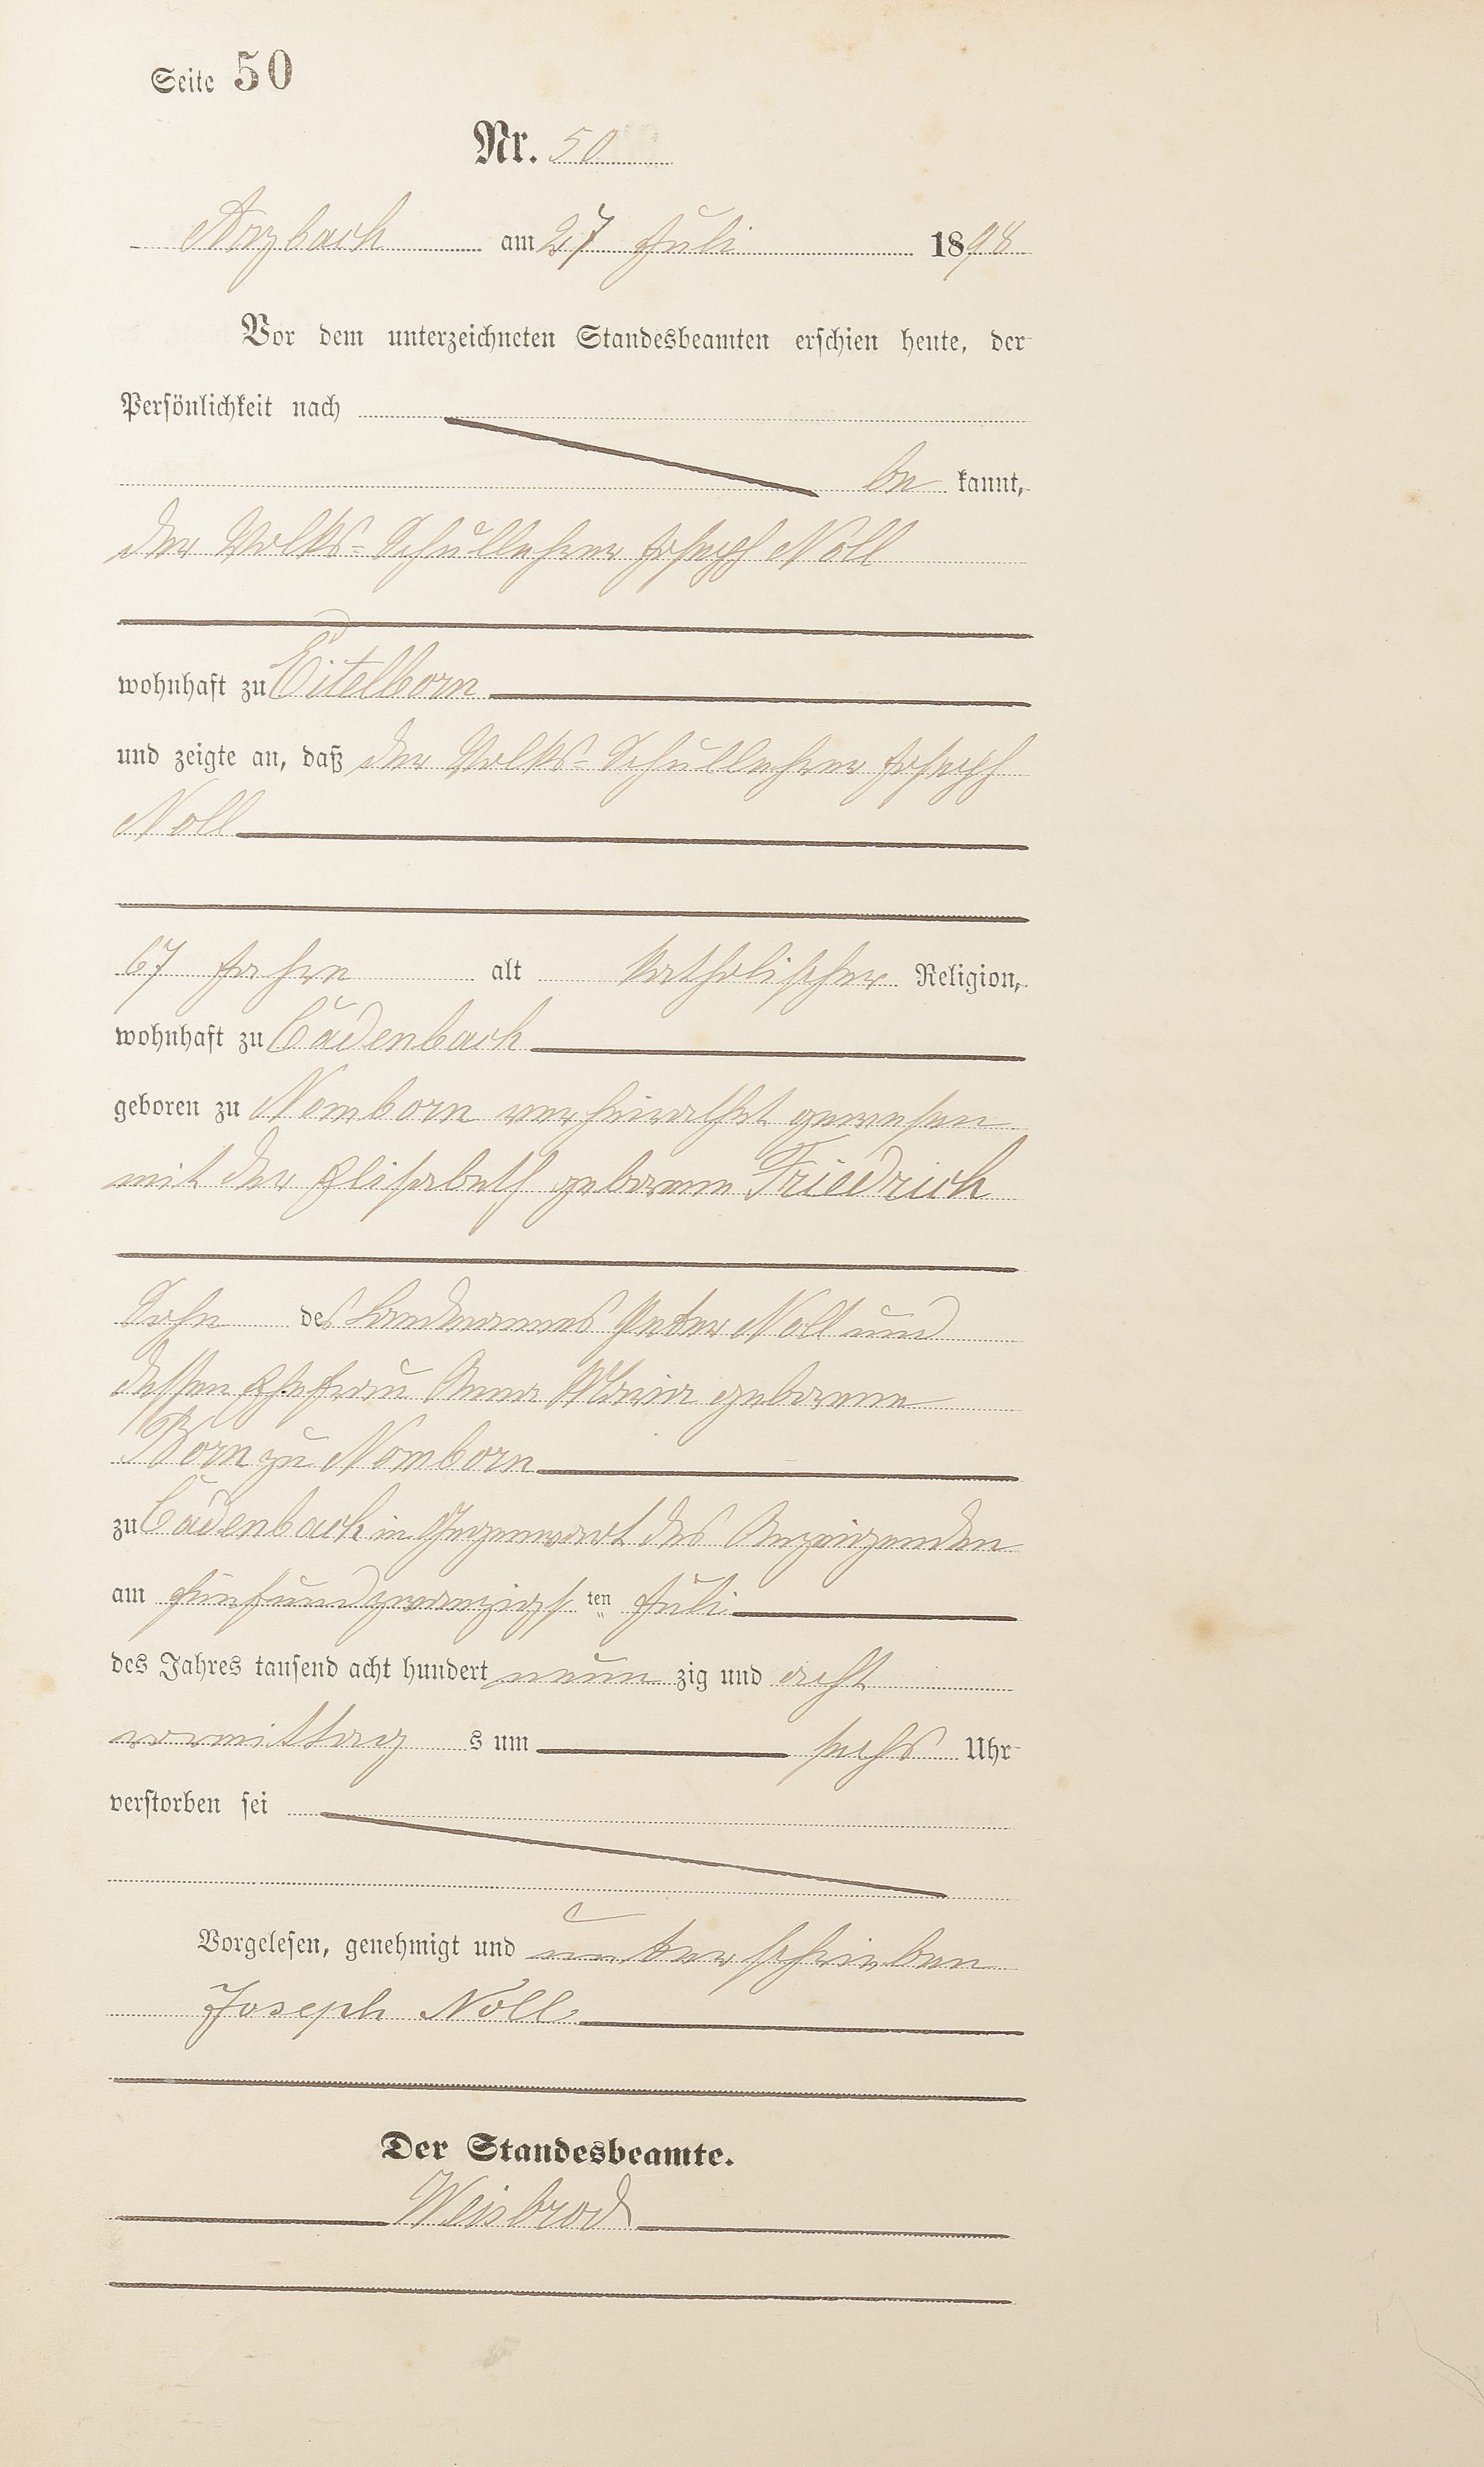 Seite 50
Nr. 50
Arzbach am 27 Juli 1898
Vor dem unterzeichneten Standesbeamten erschien heute, der
Persönlichkeit nach
be kannt,
der Volks-Schullehrer Joseph Noll
wohnhaft zu Eitelborn
und zeigte an, daß der Volks-Schullehrer Joseph
Noll
67 Jahre alt katholischer Religion,
wohnhaft zu Cadenbach
geboren zu Nomborn verheirathet gewesen
mit der Elisabeth geborene Friedrich
Sohn des Landmannes Peter Noll und
dessen Ehefrau Anna Maria geborene
Born zu Nomborn
zu Cadenbach in Gegenwart des Anzeigenden
am fünfundzwanzigs ten Juli
des Jahres tausend acht hundert neun zig und acht
vormittag s um sechs Uhr
verstorben sei
Vorgelesen, genehmigt und unterschrieben
Joseph Noll
Der Standesbeamte.
Weisbrod